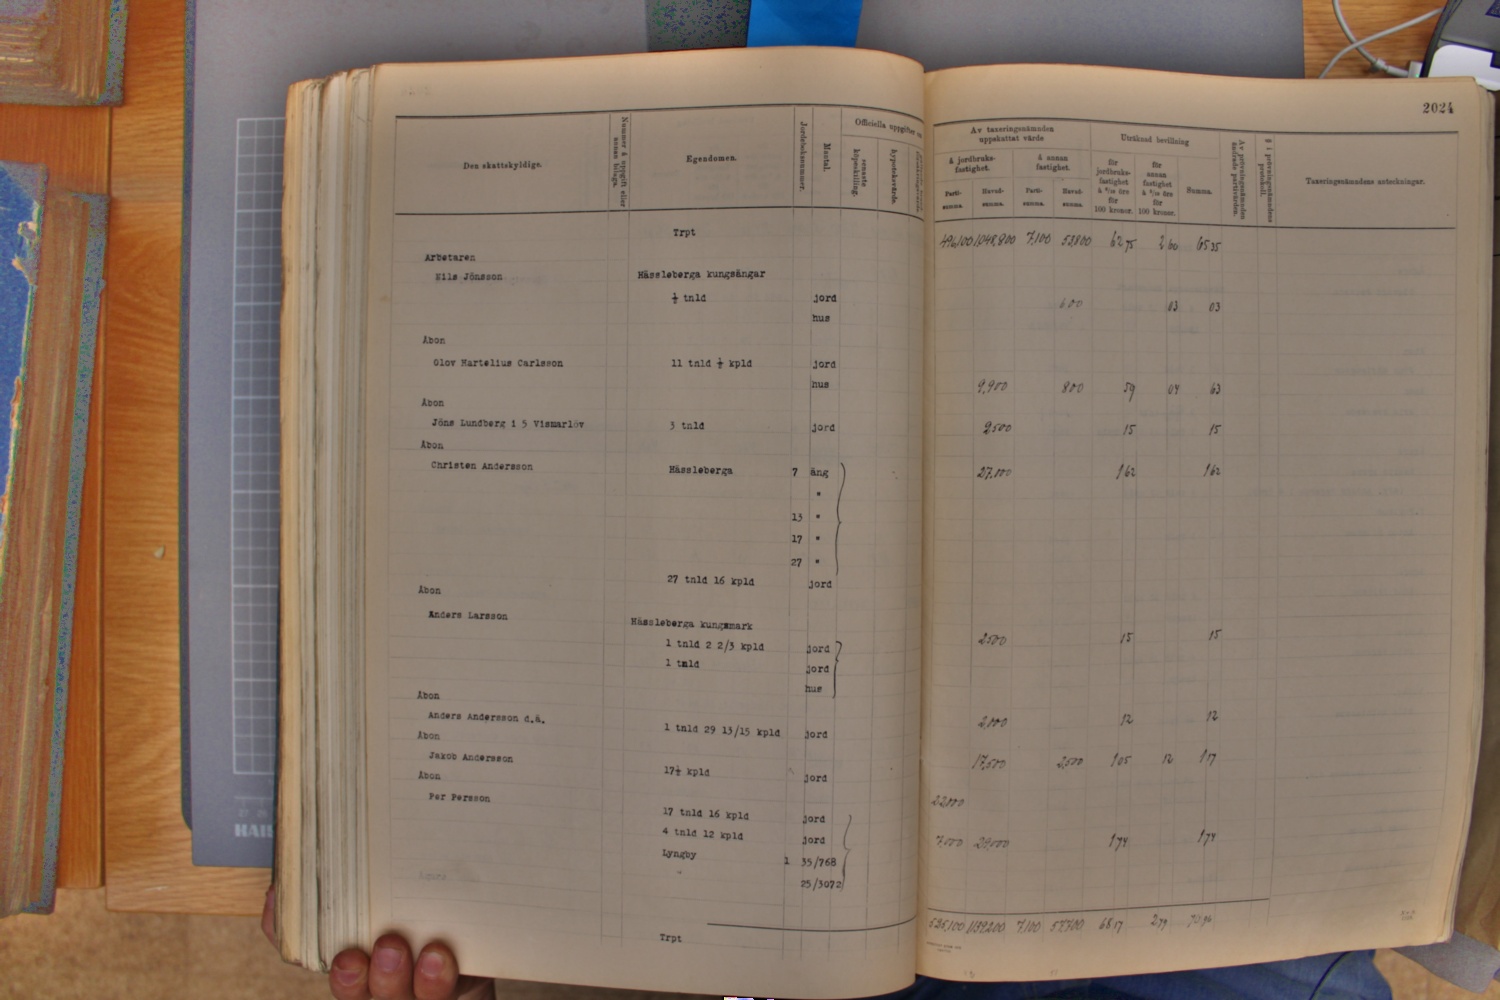 2024
Den skattskyldige.
Nummer å uppgift eller annan bilaga.
Egendomen.
Jordeboksnummer.
Mantal.
Officiella uppgifter
senaste köpeskilling.
hypoteksvärde.
Av taxeringsnämnden uppskattat värde
å jordbruksfastighet.
å annan fastighet.
Parti-summa.
Huvud-summa.
Parti-summa.
Huvud-summa.
Uträknad bevillning
för jordbruksfastighet å 6/10 öre för 100 kronor.
för annan fastighet å 5/10 öre för 100 kronor.
Summa.
Av prövningsnämnden ändrade partivärden.
§ i prövningsnämndens protokoll.
Taxeringsnämndens anteckningar.
Trpt 7,100 53,800 62 75 2 60 65 35
Arbetaren
Nils Jönsson Hässleberga kungsängar
½ tnld jord 600 03 03
hus
Åbon
Olov Hartelius Carlsson 11 tnld ½ kpld jord
hus 9,900 800 59 04 63
Åbon
Jöns Lundberg i 5 Vismarlöv 3 tnld jord 2500 15 15
Åbon
Christen Andersson Hässleberga 7 äng 27,000 1 62 1 62
"
13 "
17 "
27 "
27 tnld 16 kpld jord
Åbon
Anders Larsson Hässleberga kungsmark
1 tnld 2 2/3 kpld jord 2500 15 15
1 tnld jord
hus
Åbon
Anders Andersson d.ä. 1 tnld 29 13/15 kpld jord 2,000 12 12
Åbon
Jakob Andersson 17½ kpld jord 17,500 2,500 1 05 12 1 17
Åbon
Per Persson 22,000
17 tnld 16 kpld jord
4 tnld 12 kpld jord 7,000 29,000 1 74 1 74
Lyngby 1 35/768
" 25/3072
Trpt 7,100 57,700 68 17 2 79